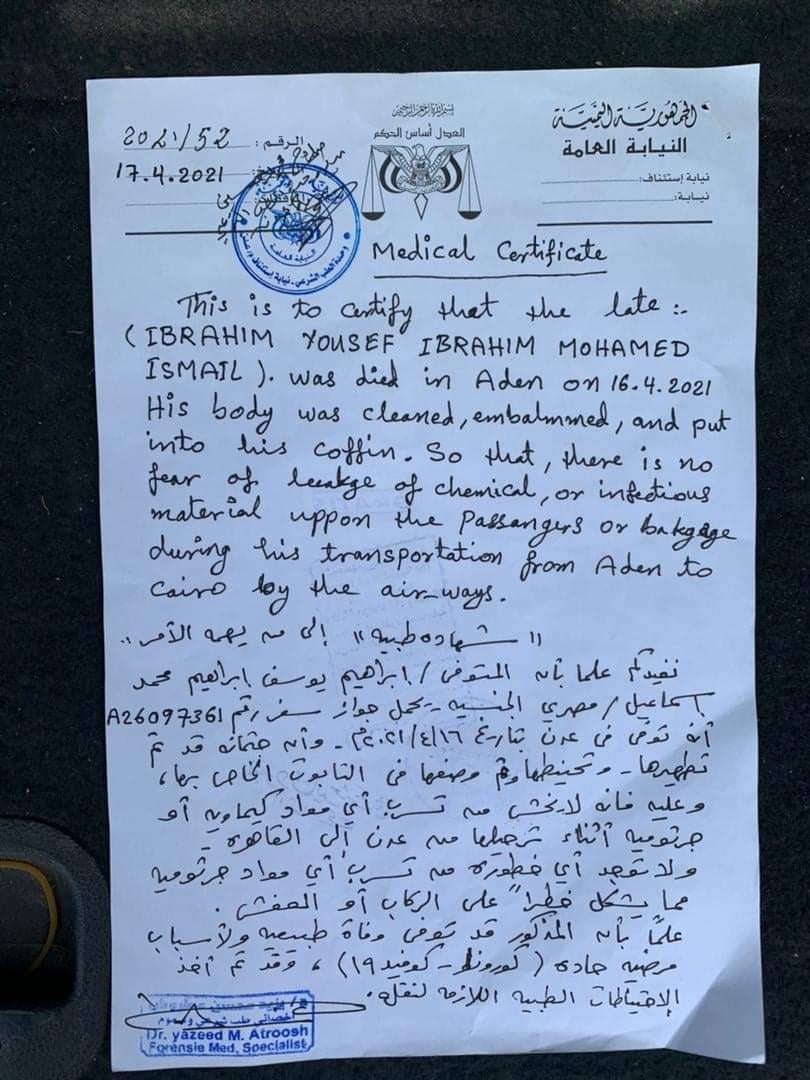 الجمهورية اليمنية
النيابة العامة
نيابة إستئناف:
نيابة:
بسم الله الرحمن الرحيم
العدل أساس الحكم
الرقم: 2021/52
17.4.2021
النيابة العامة
وحدة الطب الشرعي - نيابة إستئناف م/عدن
Medical Certificate
This is to certify that the late:-
(IBRAHIM YOUSEF IBRAHIM MOHAMED
ISMAIL). was died in Aden on 16.4.2021
His body was cleaned, embalmmed, and put
into his coffin. So that, there is no
fear of leakge of chemical, or infectious
material uppon the Passangers or bakgage
during his transportation from Aden to
Cairo by the air-ways.
"شهاده طبيه" إلى من يهمه الأمر،،
نفيدكم علما بأن المتوفى / ابراهيم يوسف ابراهيم محمد
اسماعيل / مصري الجنسيه - يحمل جواز سفر رقم A26097361
أنه توفى في عدن بتاريخ ٢٠٢١/٤/١٦م - وأن جثمانه قد تم
تطهيرها - وتحنيطها وتم وضعها في التابوت الخاص بها،
وعليه فانه لا يخشى من تسرب أي مواد كيماويه أو
جرثوميه أثناء ترحيلها من عدن إلى القاهره -
ولا توجد أي خطوره من تسرب أي مواد جرثوميه
مما يشكل خطراً على الركاب أو العفش.
علماً بأن المذكور قد توفى وفاة طبيعيه ولأسباب
مرضيه حاده (كورونا - كوفيد ١٩)، وقد تم أخذ
الإحتياطات الطبيه اللازمه لنقله.
أخصائي طب شرعي وسموم
Dr. yazeed M. Atroosh
Forensie Med. Specialist